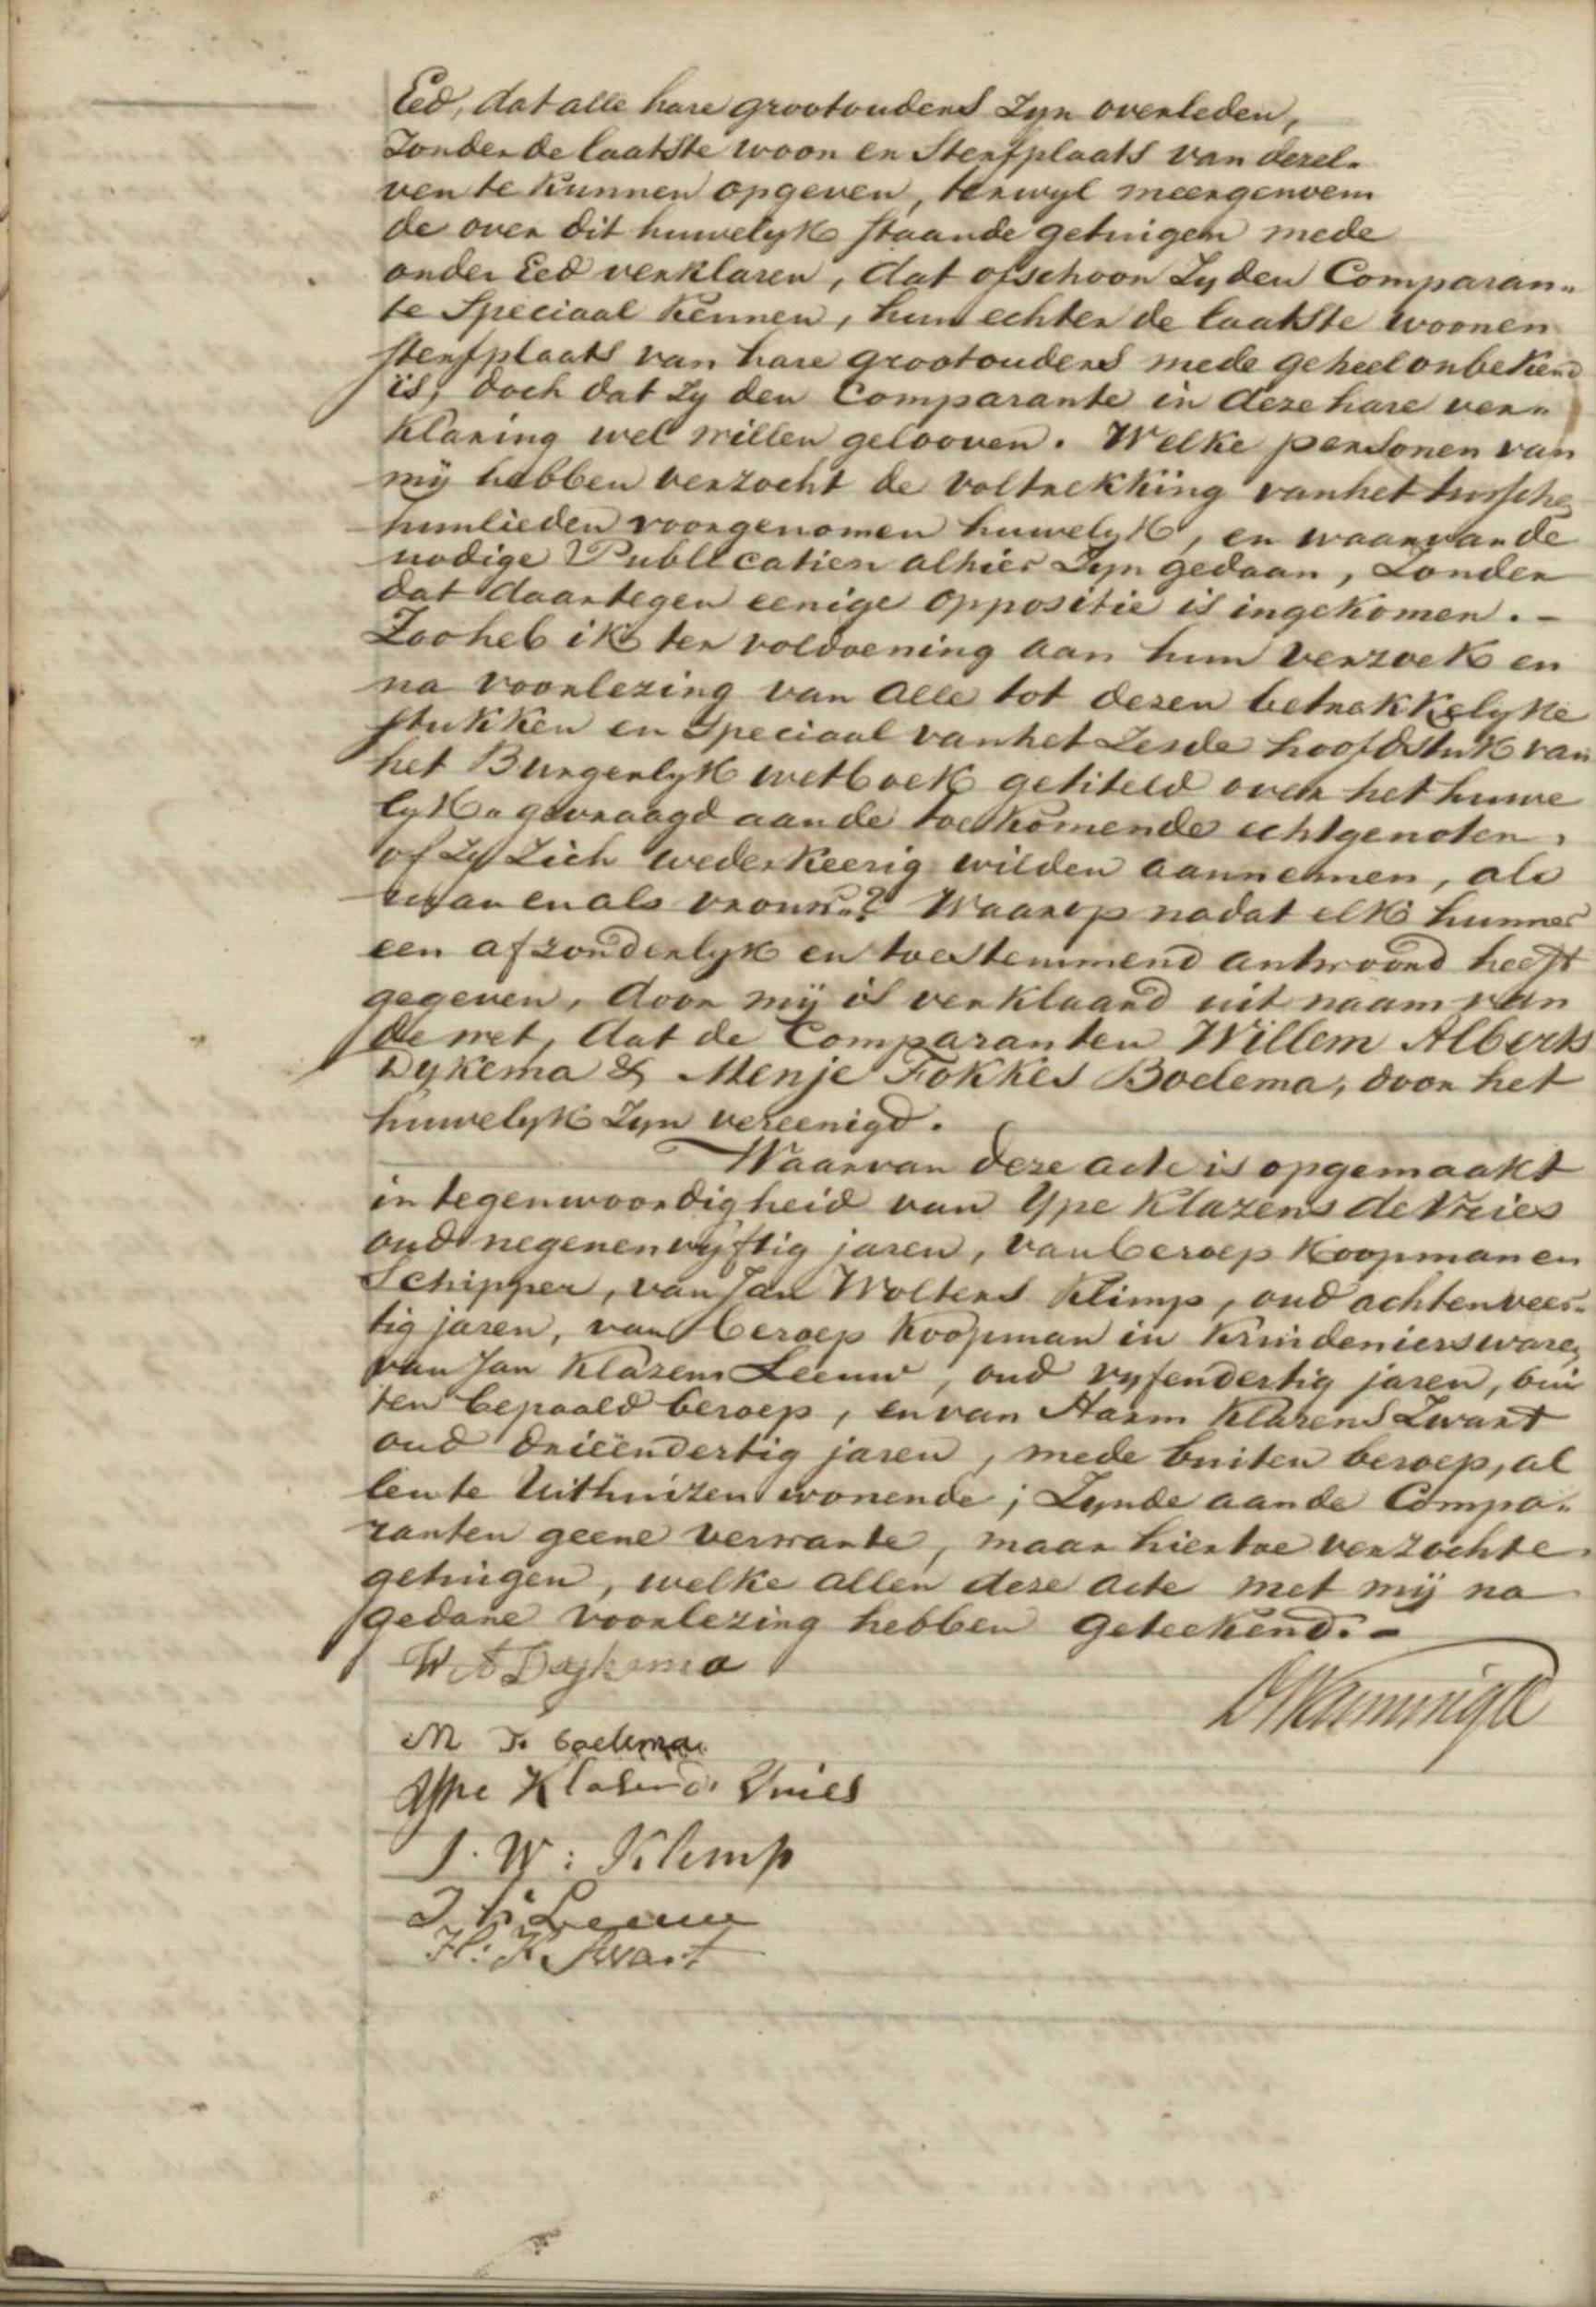 Eed, dat alle hare grootouders Zyn overleden,
Zonder de laatste woon en Sterfplaats van dezel„
ven te Kunnen opgeven, terwyl meergenoem
de over dit huwelyk staande getuigen mede
onder Eed verklaren, dat ofschoon Zy den Comparan„
te Speciaal Kennen, hun echter de laatste woon en
sterfplaats van hare grootouders mede geheel onbekend
is; doch dat Zy den Comparante in deze hare ver„
klaring wel willen gelooven. Welke personen van
mij hebben verzocht de voltrekking van het tussche
hunlieden voorgenomen huwelyk, en waarvan de
nodige Publicatien alhier Zyn gedaan, Zonder
dat daartegen eenige oppositie is ingekomen. –
Zoo heb ik ter voldoening aan hun verzoek en
na voorlezing van alle tot dezen betrekkelyke
stukken en Speciaal van het Zesde hoofdstuk van
het Burgerlyk wetboek getiteld over het huwe
lyk„ gevraagd aan de toekomende echtgenoten,
of Zy Zich wederkeerig wilden aannemen, als
man en als vrouw„? Waarop nadat elk hunner
een afzonderlyk en toestemmend antwoord heeft
gegeven, door mij is verklaard uit naam van
de wet, dat de Comparanten Willem Alberts
Dykema & Menje Fokkes Boelema, door het
huwelyk Zyn vereenigd.
Waarvan deze acte is opgemaakt
in tegenwoordigheid van Ype Klazens de Vries
oud negenenvyftig jaren, van beroep Koopman en
Schipper, van Jan Wolters Klimp, oud achtenveer„
tig jaren, van beroep Koopman in Kruidenierswaren,
van Jan Klazens Leeuw, oud vyfendertig jaren, bui
ten bepaald beroep, en van Harm Klazens Zwart
oud drieëndertig jaren, mede buiten beroep, al
len te Uithuizen wonende; Zynde aan de Compa„
ranten geene verwante, maar hiertoe verzochte
getuigen, welke allen deze acte met mij na
gedane voorlezing hebben geteekend. –
W A Dijkema
M F Boelema
Ype Klasens Vries
J. W: Klimp
J K Leeuw
H: K Swart